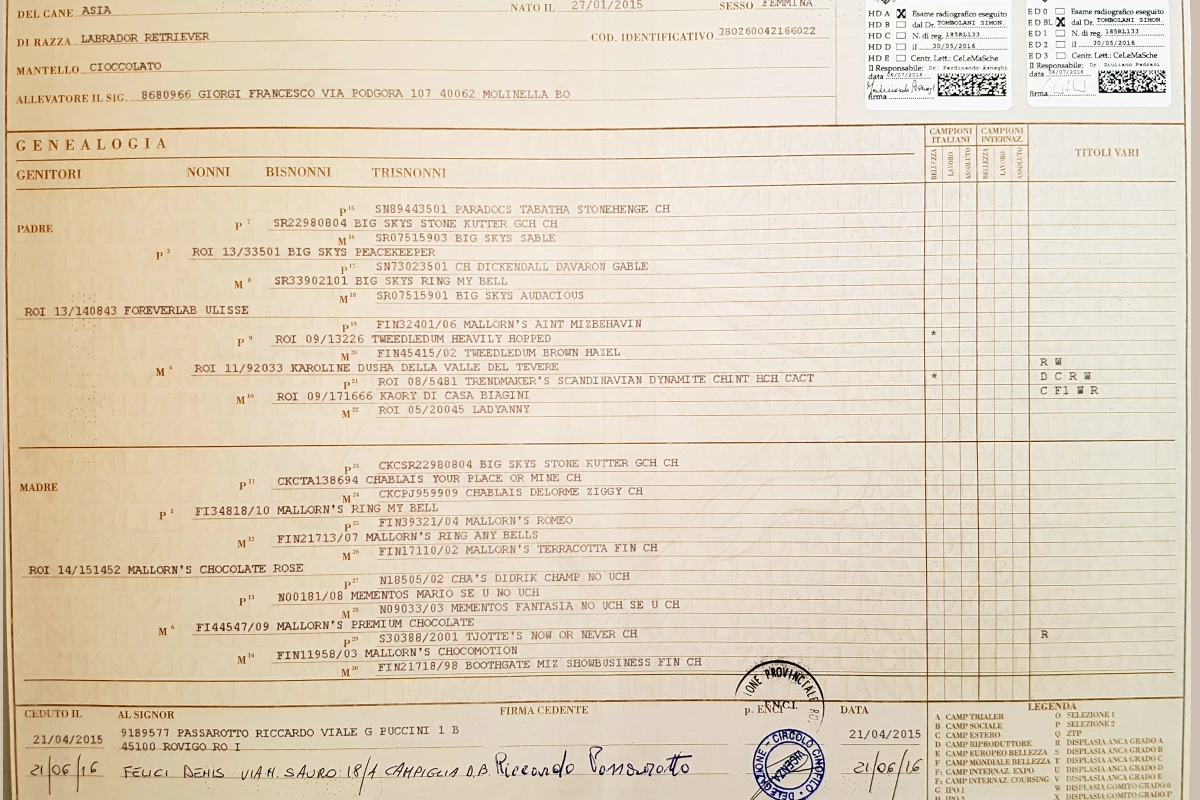 DEL CANE ASIA NATO IL 27/01/2015 SESSO FEMMINA
DI RAZZA LABRADOR RETRIEVER COD. IDENTIFICATIVO 380260042166022
MANTELLO CIOCCOLATO
ALLEVATORE IL SIG. 8680966 GIORGI FRANCESCO VIA PODGORA 107 40062 MOLINELLA BO
HD A X Esame radiografico eseguito
HD B dal Dr. TOMBOLANI SIMON.
HD C N. di reg. 185RL133
HD D il 30/05/2016
HD E Centr. Lett.: CeLeMaSche
Il Responsabile: Dr. Ferdinando Asnaghi
data 06/07/2016
firma
ED 0 Esame radiografico eseguito
ED BL X dal Dr. TOMBOLANI SIMON.
ED 1 N. di reg. 185RL133
ED 2 il 30/05/2016
ED 3 Centr. Lett.: CeLeMaSche
Il Responsabile: Dr. Giuliano Pedrani
data 06/07/2016
firma
GENEALOGIA
CAMPIONI ITALIANI CAMPIONI INTERNAZ. TITOLI VARI
BELLEZZA LAVORO ASSOLUTO BELLEZZA LAVORO ASSOLUTO
GENITORI NONNI BISNONNI TRISNONNI
P 15 SN89443501 PARADOCS TABATHA STONEHENGE CH
PADRE P 7 SR22980804 BIG SKYS STONE KUTTER GCH CH
M 16 SR07515903 BIG SKYS SABLE
P 3 ROI 13/33501 BIG SKYS PEACEKEEPER
P 17 SN73023501 CH DICKENDALL DAVARON GABLE
M 8 SR33902101 BIG SKYS RING MY BELL
M 18 SR07515901 BIG SKYS AUDACIOUS
ROI 13/140843 FOREVERLAB ULISSE
P 19 FIN32401/06 MALLORN'S AINT MIZBEHAVIN
P 9 ROI 09/13226 TWEEDLEDUM HEAVILY HOPPED *
M 20 FIN45415/02 TWEEDLEDUM BROWN HAZEL
M 4 ROI 11/92033 KAROLINE DUSHA DELLA VALLE DEL TEVERE R W
P 21 ROI 08/5481 TRENDMAKER'S SCANDINAVIAN DYNAMITE CHINT HCH CACT * D C R W
M 10 ROI 09/171666 KAORY DI CASA BIAGINI C F1 W R
M 22 ROI 05/20045 LADYANNY
P 23 CKCSR22980804 BIG SKYS STONE KUTTER GCH CH
MADRE P 11 CKCTA138694 CHABLAIS YOUR PLACE OR MINE CH
M 24 CKCPJ959909 CHABLAIS DELORME ZIGGY CH
P 5 FI34818/10 MALLORN'S RING MY BELL
P 25 FIN39321/04 MALLORN'S ROMEO
M 12 FIN21713/07 MALLORN'S RING ANY BELLS
M 26 FIN17110/02 MALLORN'S TERRACOTTA FIN CH
ROI 14/151452 MALLORN'S CHOCOLATE ROSE
P 27 N18505/02 CHA'S DIDRIK CHAMP NO UCH
P 13 N00181/08 MEMENTOS MARIO SE U NO UCH
M 28 N09033/03 MEMENTOS FANTASIA NO UCH SE U CH
M 6 FI44547/09 MALLORN'S PREMIUM CHOCOLATE
P 29 S30388/2001 TJOTTE'S NOW OR NEVER CH R
M 14 FIN11958/03 MALLORN'S CHOCOMOTION
M 30 FIN21718/98 BOOTHGATE MIZ SHOWBUSINESS FIN CH
CEDUTO IL AL SIGNOR FIRMA CEDENTE p. ENCI DATA
21/04/2015 9189577 PASSAROTTO RICCARDO VIALE G PUCCINI 1 B 21/04/2015
45100 ROVIGO RO I
21/06/16 FELICI DENIS VIA N. SAURO 18/A CAMPIGLIA D.B. Riccardo Passarotto 21/06/16
IONE PROVINCIALE RO
E.N.C.I.
DELEGAZIONE CIRCOLO CINOFILO
VICENZA
LEGENDA
A CAMP TRIALER O SELEZIONE 1
B CAMP SOCIALE P SELEZIONE 2
C CAMP ESTERO Q ZTP
D CAMP RIPRODUTTORE R DISPLASIA ANCA GRADO A
E CAMP EUROPEO BELLEZZA S DISPLASIA ANCA GRADO B
F CAMP MONDIALE BELLEZZA T DISPLASIA ANCA GRADO C
F1 CAMP INTERNAZ. EXPO U DISPLASIA ANCA GRADO D
F2 CAMP INTERNAZ. COURSING V DISPLASIA ANCA GRADO E
G IPO 1 W DISPLASIA GOMITO GRADO 0
H IPO 2 X DISPLASIA GOMITO GRADO P